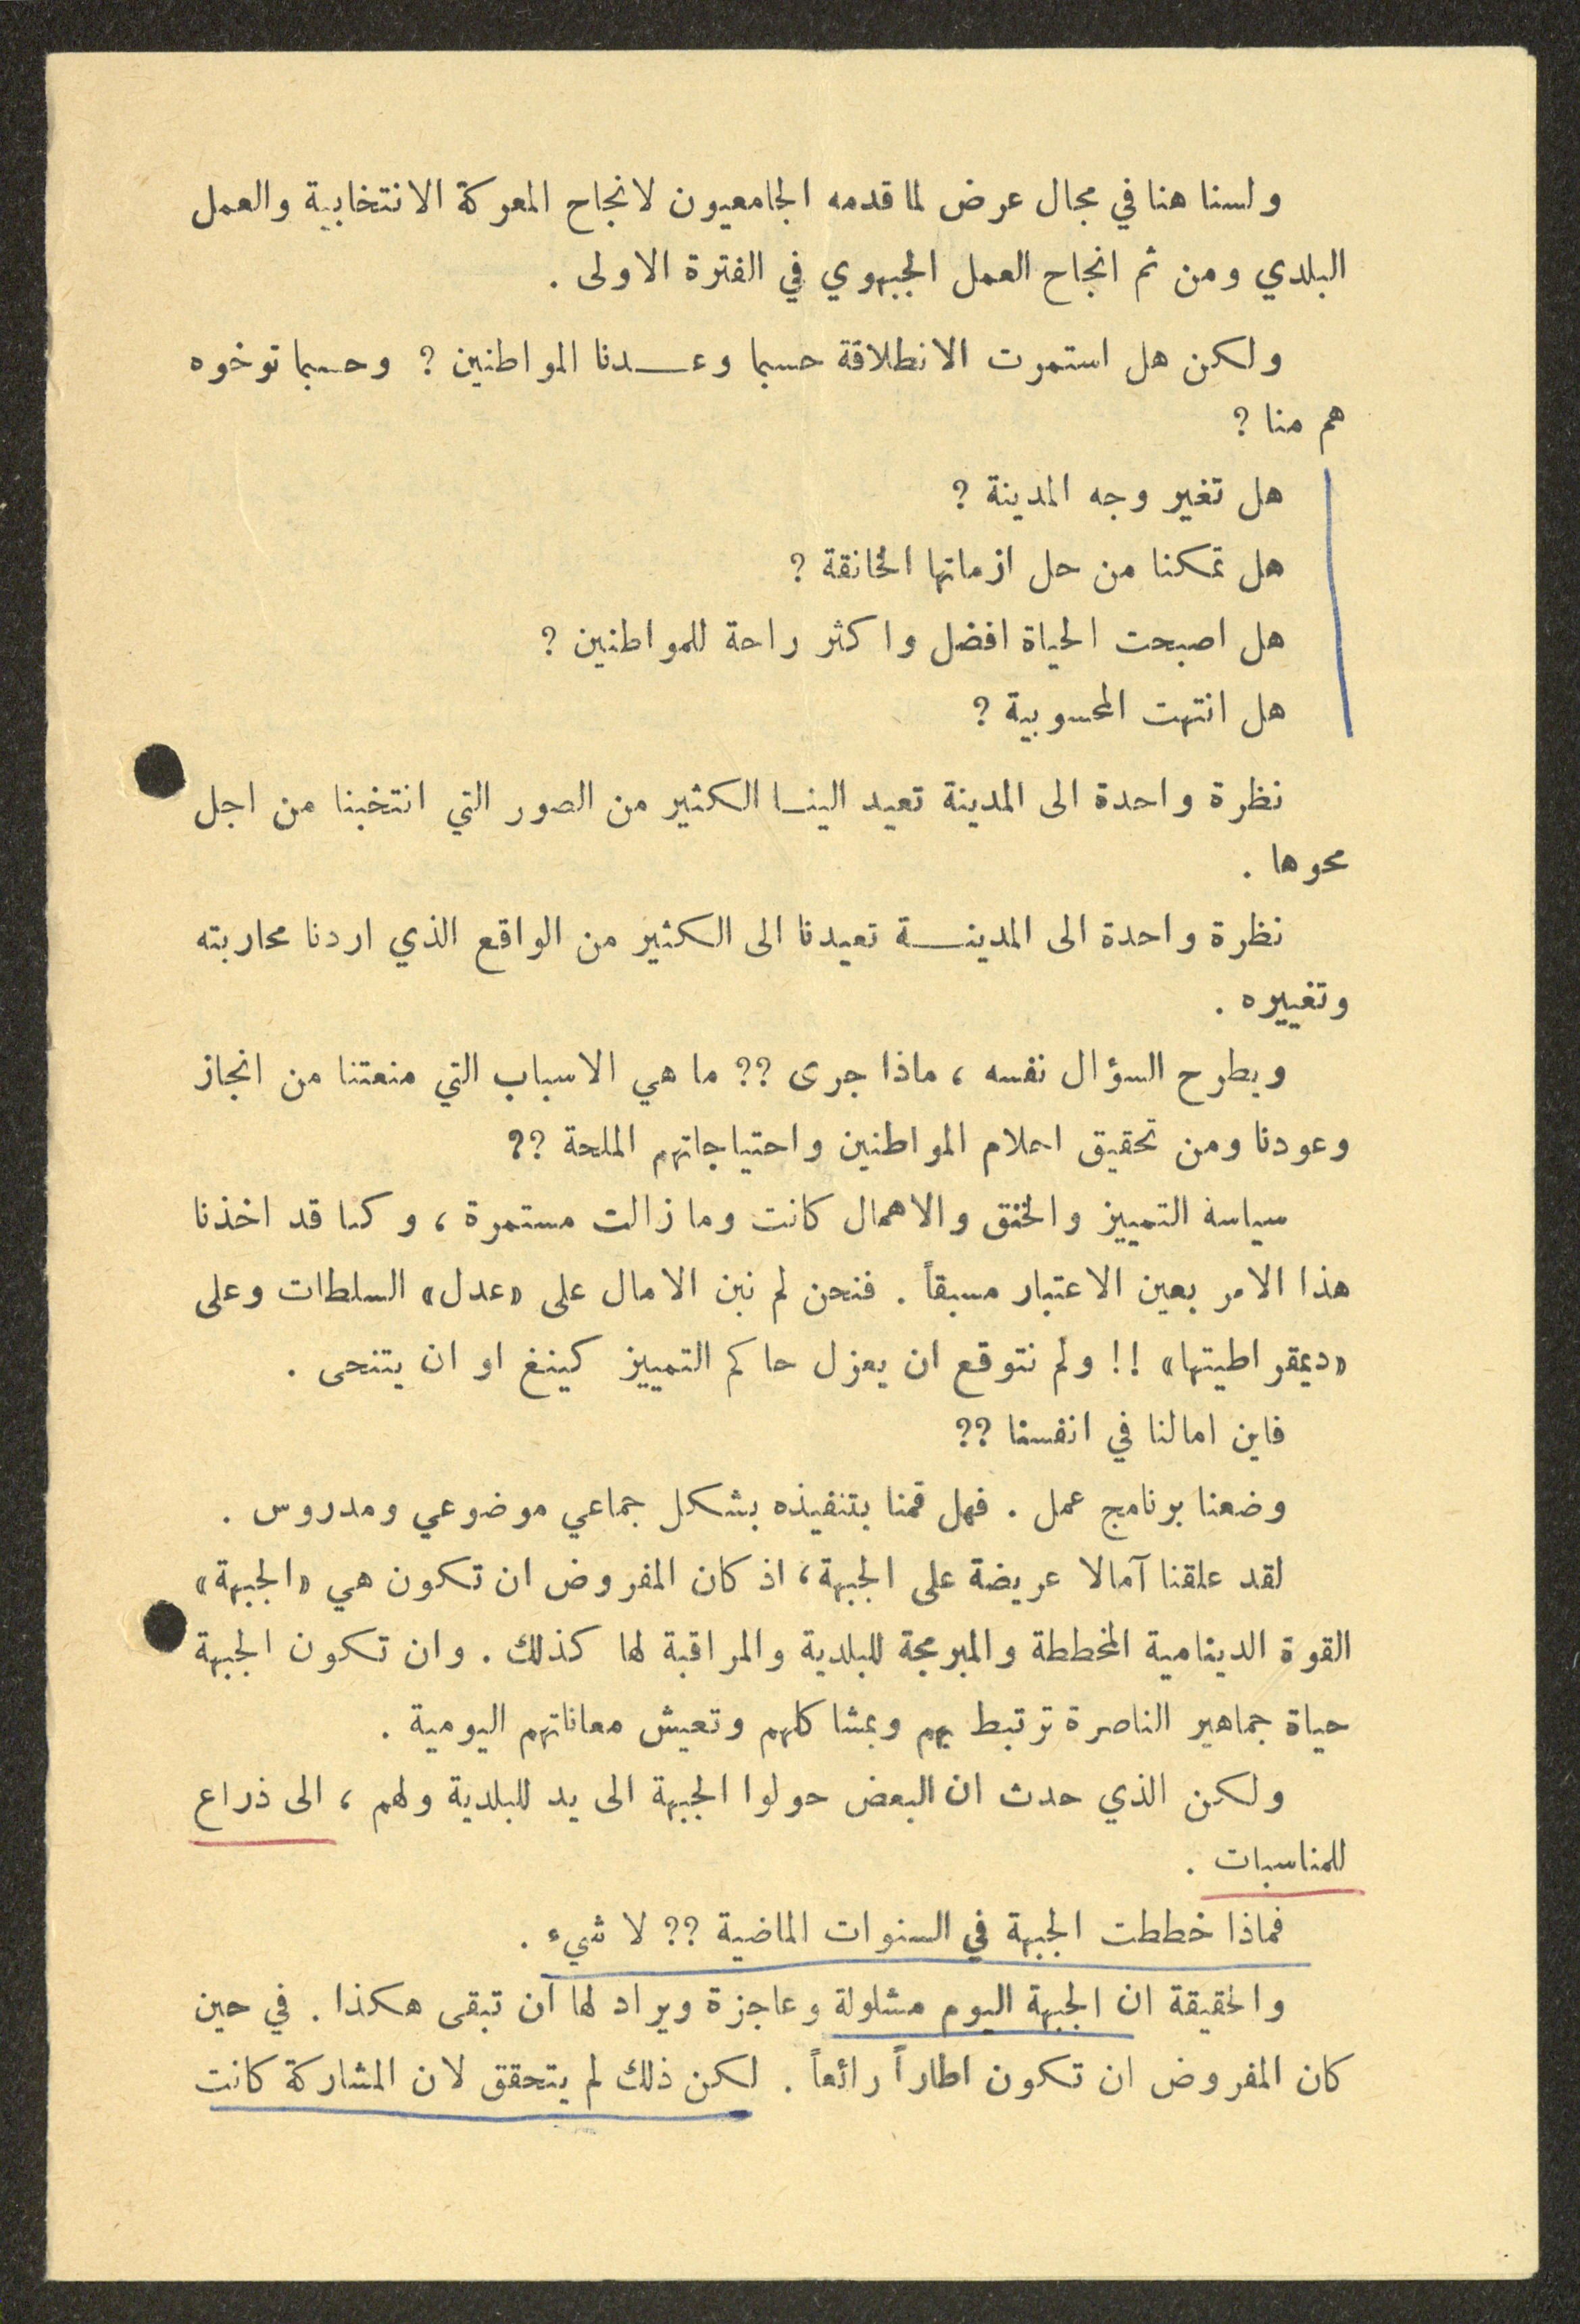 ولسنا هنا في مجال عرض لما قدمه الجامعيون لانجاح المعركة الانتخابية والعمل
البلدي ومن ثم انجاح العمل الجبهوي في الفترة الاولى .
ولكن هل استمرت الانطلاقة حسبما وعدنا المواطنين ? وحسبما توخوه
هم منا ?
هل تغير وجه المدينة ?
هل تمكنا من حل ازماتها الخانقة ?
هل اصبحت الحياة افضل واكثر راحة للمواطنين ?
هل انتهت المحسوبية ?
نظرة واحدة الى المدينة تعيد الينا الكثير من الصور التي انتخبنا من اجل
محوها .
نظرة واحدة الى المدينة تعيدنا الى الكثير من الواقع الذي اردنا محاربته
وتغييره .
ويطرح السؤال نفسه ، ماذا جرى ?? ما هي الاسباب التي منعتنا من انجاز
وعودنا ومن تحقيق احلام المواطنين واحتياجاتهم الملحة ??
سياسة التمييز والخنق والاهمال كانت وما زالت مستمرة ، وكنا قد اخذنا
هذا الامر بعين الاعتبار مسبقاً . فنحن لم نبن الامال على «عدل» السلطات وعلى
«ديمقراطيتها» !! ولم نتوقع ان يعزل حاكم التمييز كينغ او ان يتنحى .
فاين امالنا في انفسنا ??
وضعنا برنامج عمل . فهل قمنا بتنفيذه بشكل جماعي موضوعي ومدروس .
لقد علقنا آمالا عريضة على الجبهة ، اذ كان المفروض ان تكون هي «الجبهة»
القوة الدينامية المخططة والمبرمجة للبلدية والمراقبة لها كذلك . وان تكون الجبهة
حياة جماهير الناصرة ترتبط بهم وبمشاكلهم وتعيش معاناتهم اليومية .
ولكن الذي حدث ان البعض حولوا الجبهة الى يد للبلدية ولهم ، الى ذراع
للمناسبات .
فماذا خططت الجبهة في السنوات الماضية ?? لا شيء .
والحقيقة ان الجبهة اليوم مشلولة وعاجزة ويراد لها ان تبقى هكذا . في حين
كان المفروض ان تكون اطاراً رائعاً . لكن ذلك لم يتحقق لان المشاركة كانت